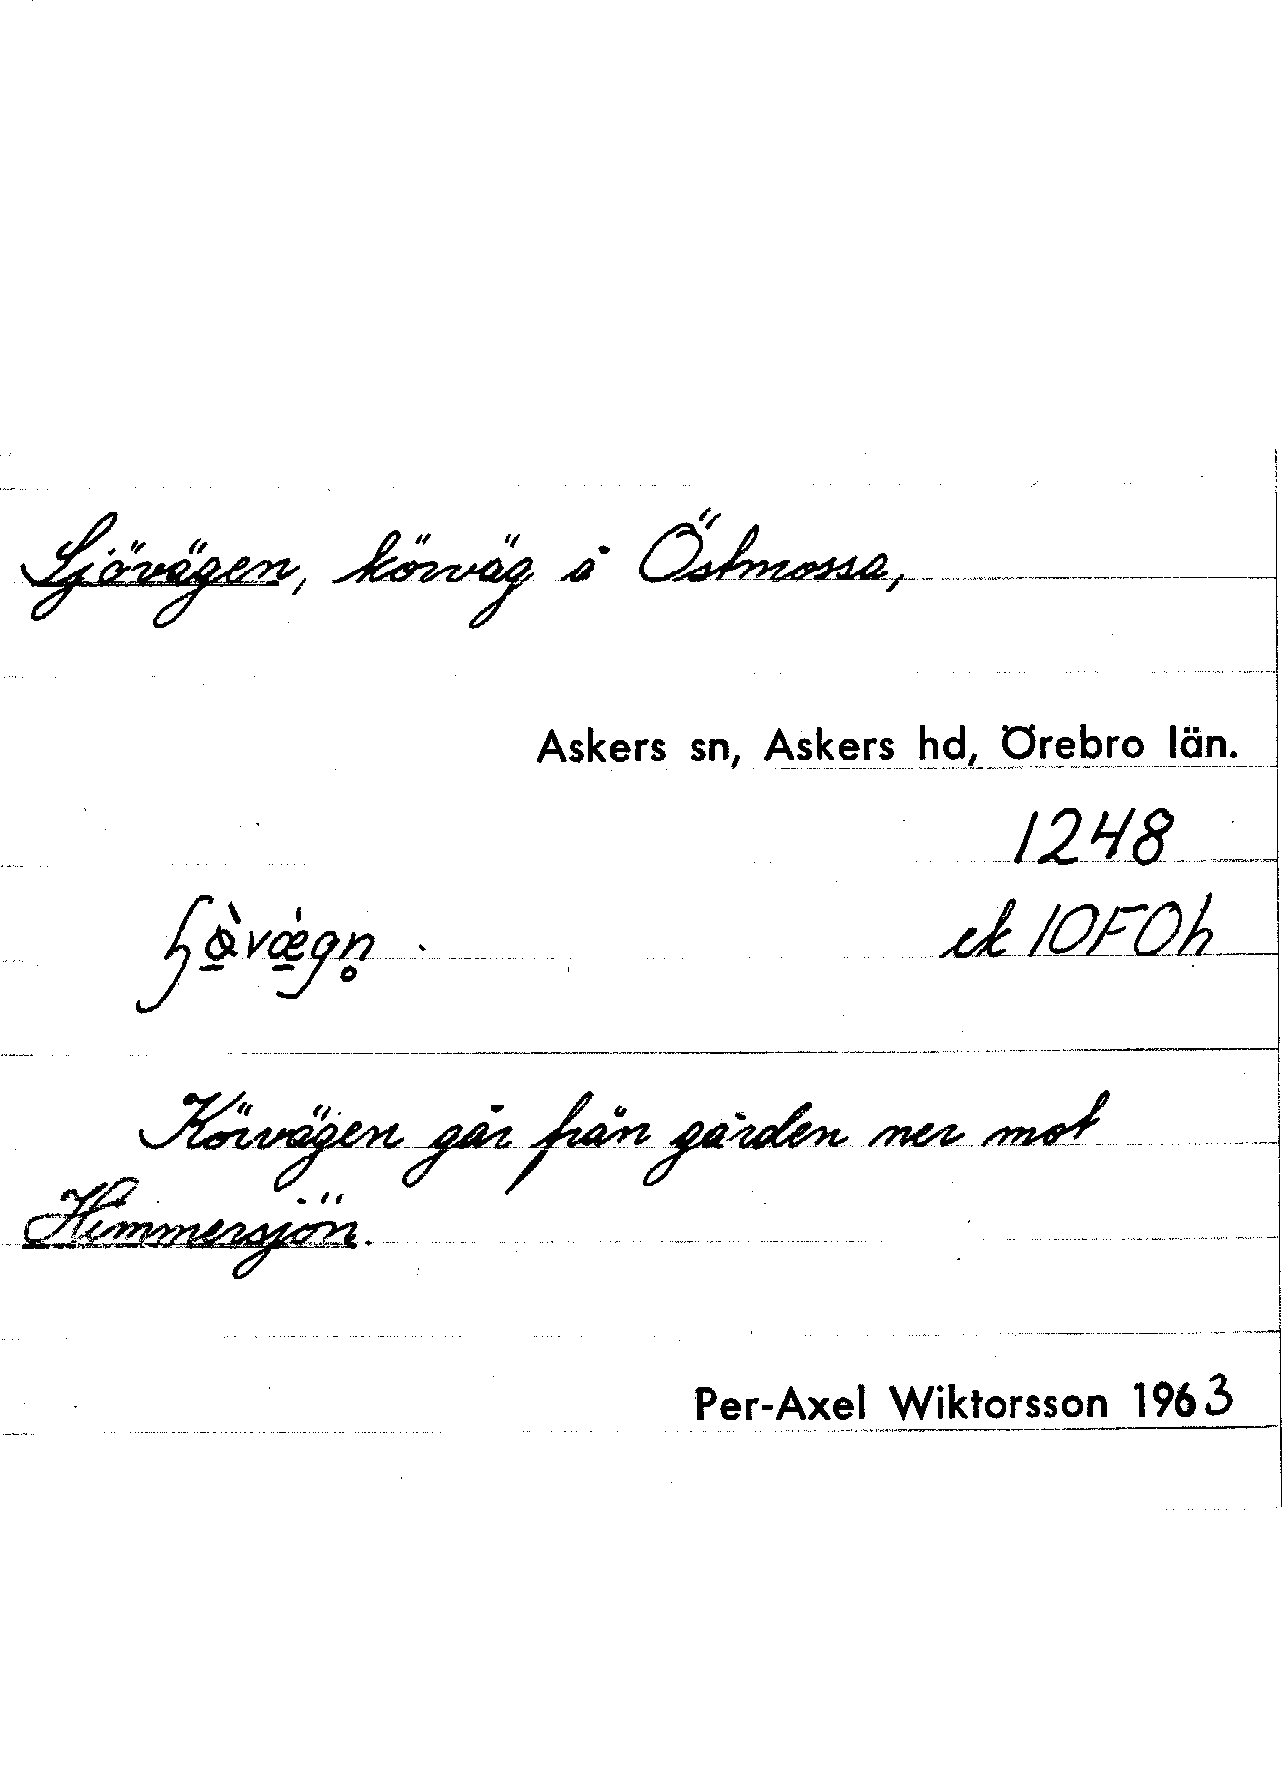 Sjövägen, körväg å Östmossa,
Askers sn, Askers hd, Örebro län.
1248
ek 10F0h
Körvägen går från gården ner mot
Himmersjön.
Per-Axel Wiktorsson 1963